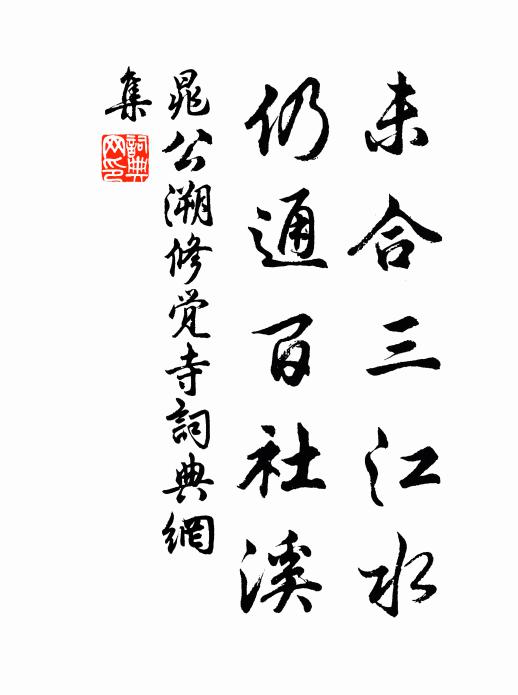 未合三江水
仍通百社溪
晁公溯修觉寺詞典網
集
詞典网印